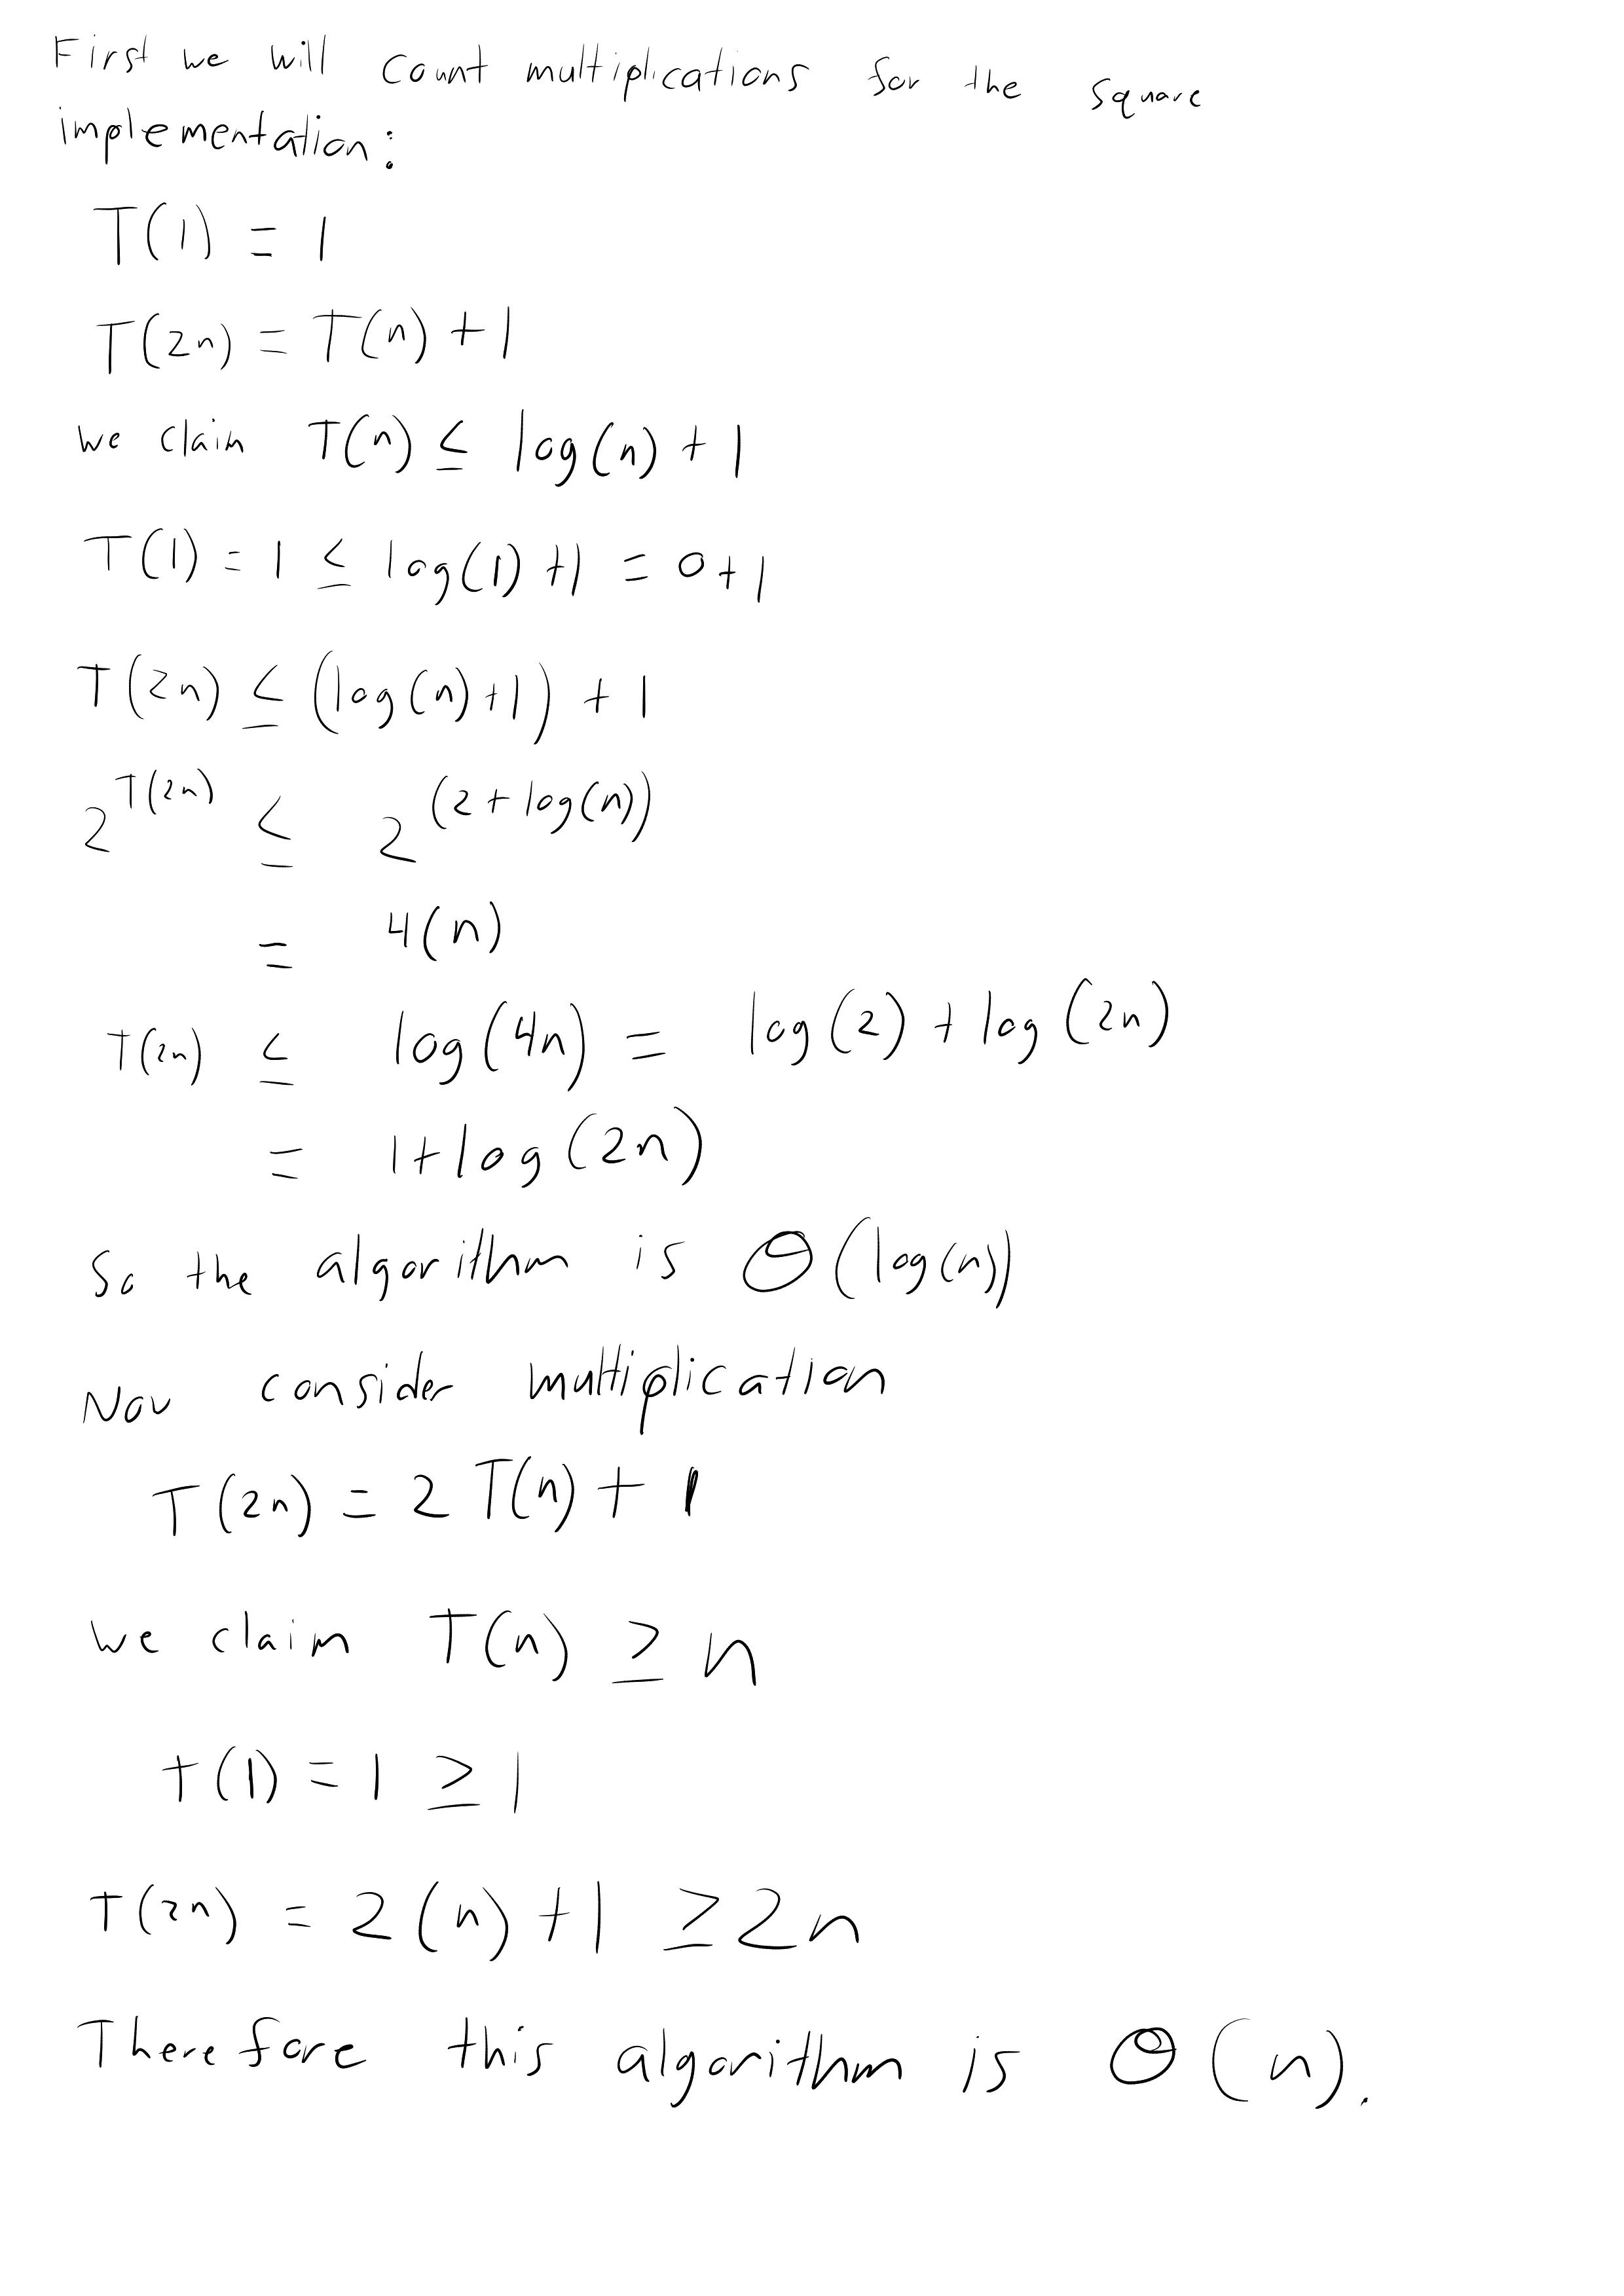 First we will count multiplications for the square
implementation:
T(1) = 1
T(2n) = T(n) + 1
we claim T(n) ≤ log(n) + 1
T(1) = 1 ≤ log(1) + 1 = 0 + 1
T(2n) ≤ (log(n) + 1) + 1
2^T(2n) ≤ 2^(2 + log(n))
= 4(n)
T(2n) ≤ log(4n) = log(2) + log(2n)
= 1 + log(2n)
So the algorithm is Θ(log(n))
Now consider multiplication
T(2n) = 2T(n) + 1
we claim T(n) ≥ n
T(1) = 1 ≥ 1
T(2n) = 2(n) + 1 ≥ 2n
Therefore this algorithm is Θ(n).